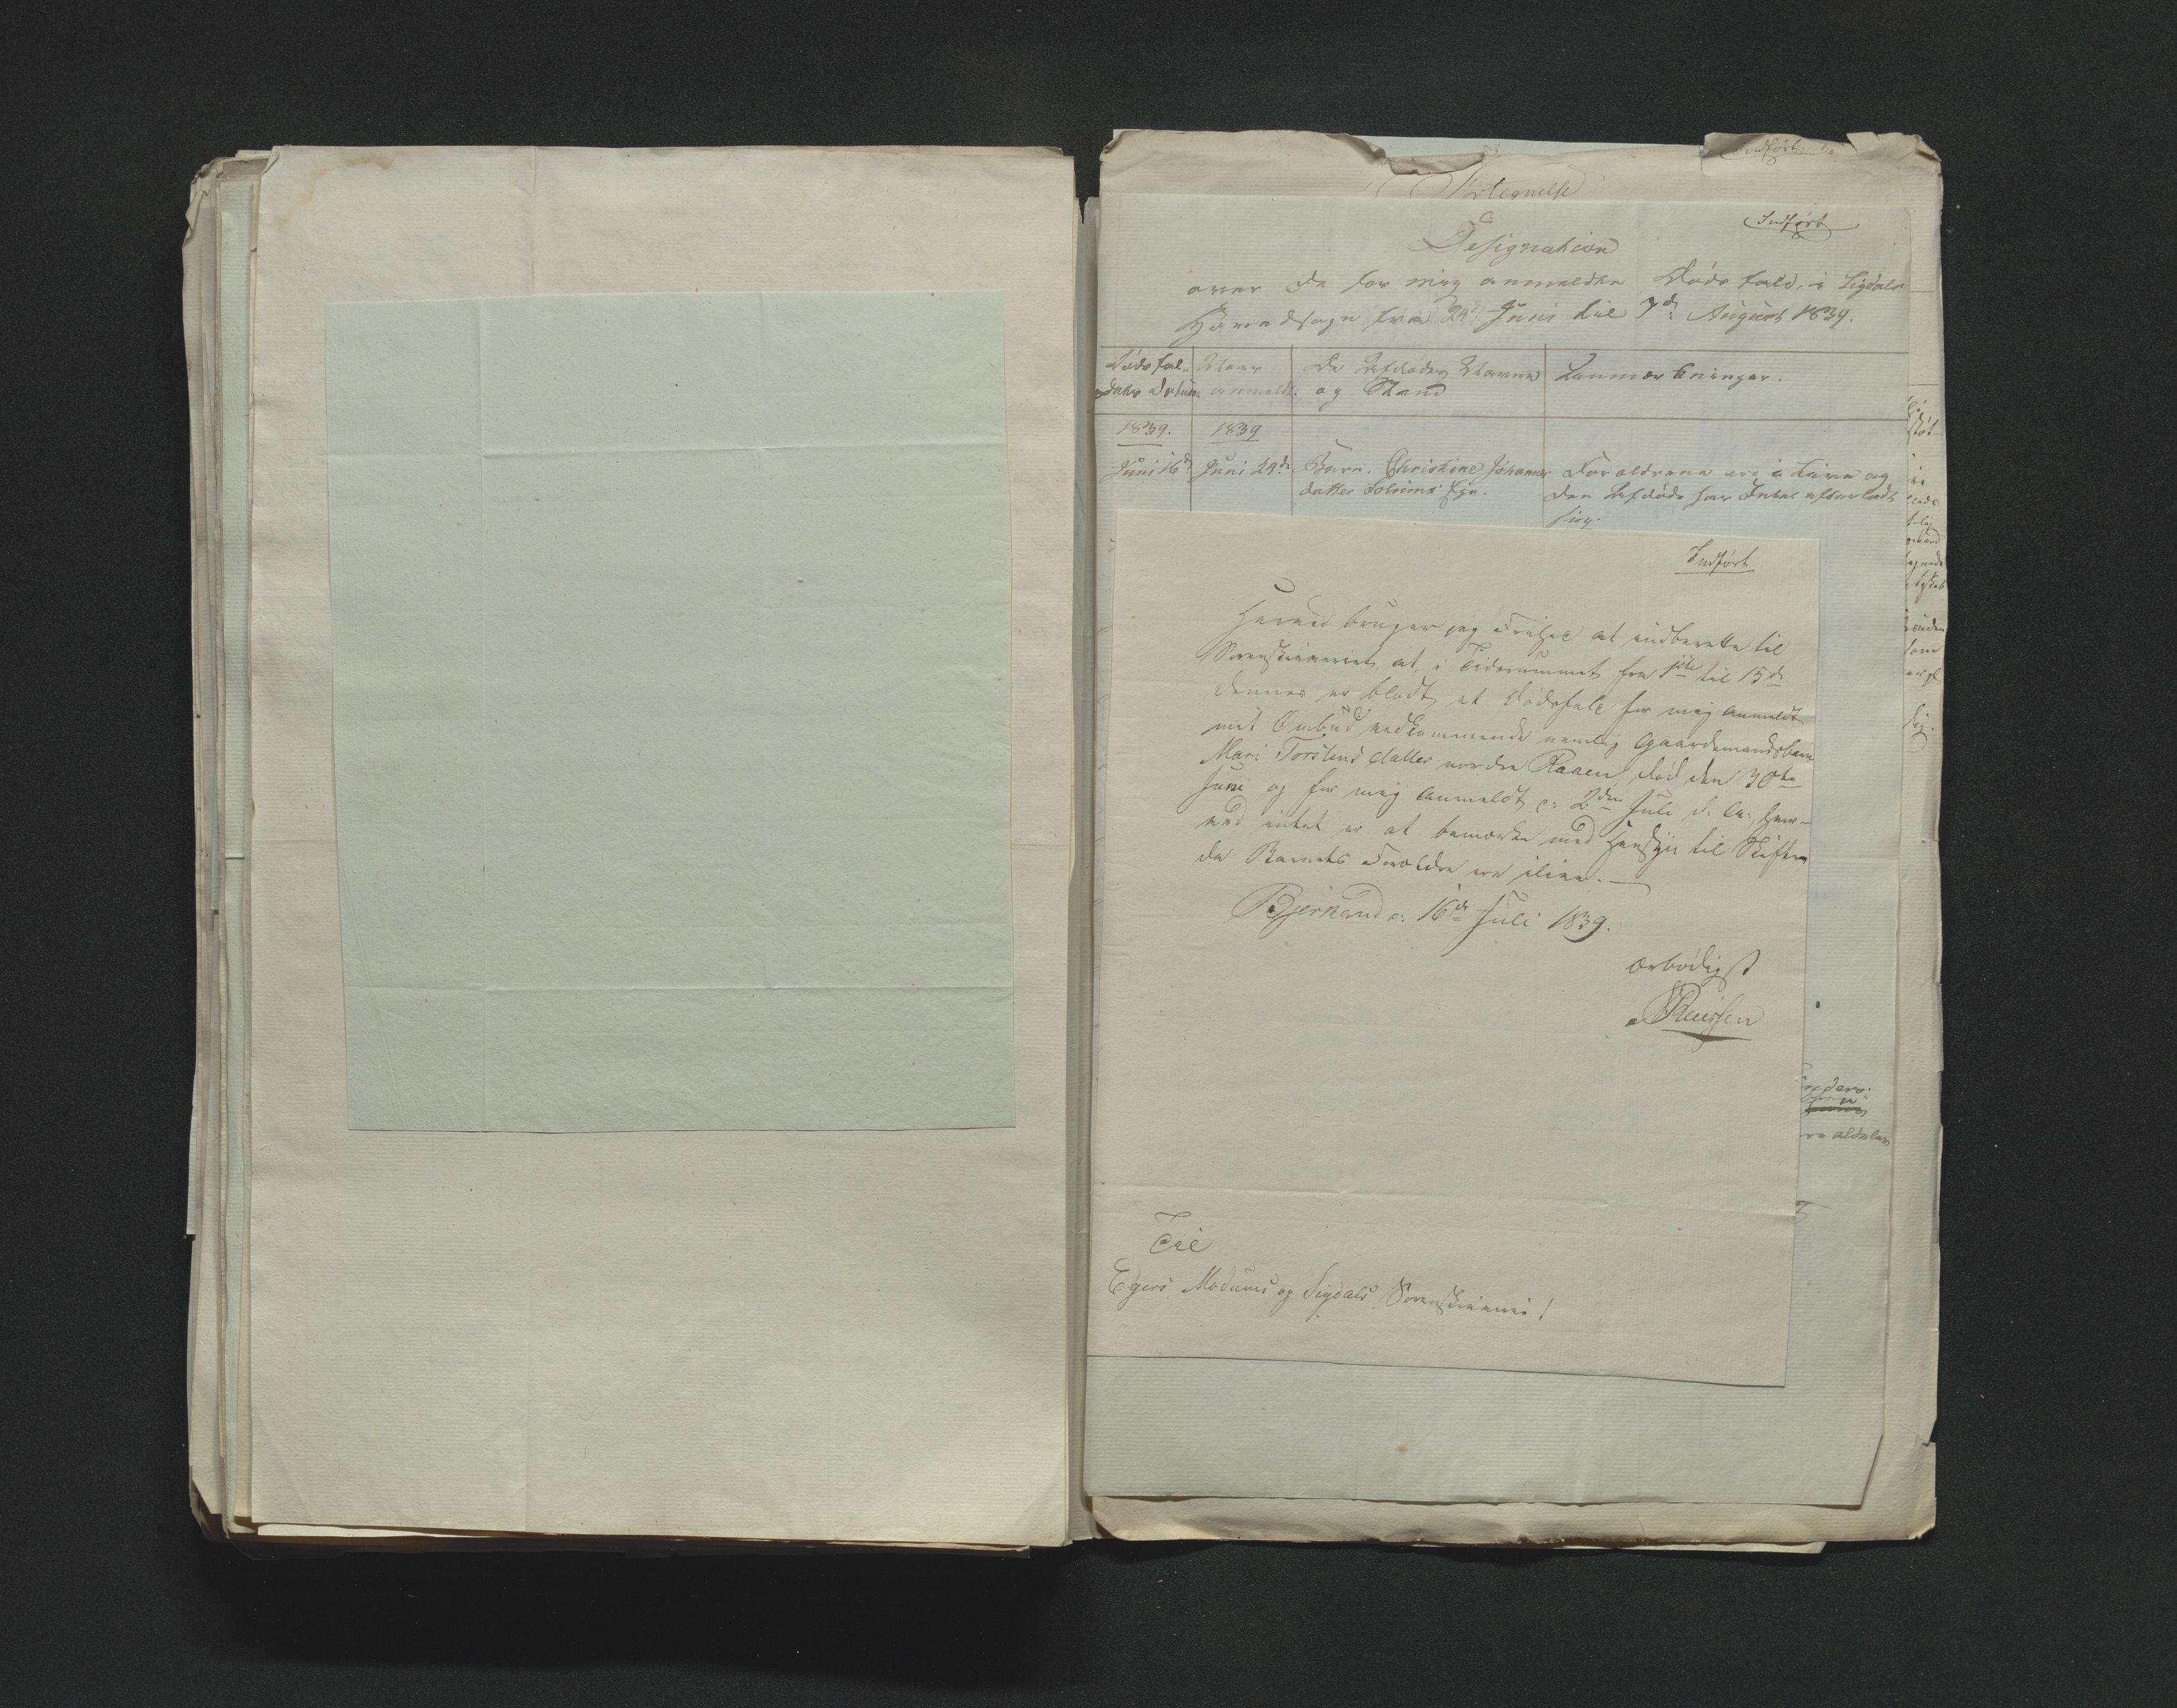 Indført
Fortegnelse
Indført
Designation
over de for mig anmeldte Dødsfald, i Sigdals
Hovedsogn fra 24de Juni til 7de August 1839.
Dødsfal- Naar De Afdødes Navne Anmærkninger.
denes Datum anmeldt. og Stand
1839. 1839
Juni 16de Juni 29de Barn. Christine Johannes Forældrene ere i Live og
datter Solums Eje. den Afdøde har Intet efterladt
sig.
Indført
Herved bruger jeg Frihed at indberette til
Sorenskriveriet, at i Tidsrummet fra 1ste til 15de
dennes er blodt et Dødsfald for mig anmeldt
mit Ombud vedkommende nemlig Gaardemandsbarn
Mari Torstensdatter nordre Raaen død den 30te
Juni og for mig anmeldt d: 2den Juli d. A., hvor-
ved intet er at bemærke med Hensyn til Skiftet
da Barnets Forældre ere ilive.
Bjerkerud d: 16de Juli 1839.
ærbødigst
Til
Egers, Modums og Sigdals Sorenskriveri!